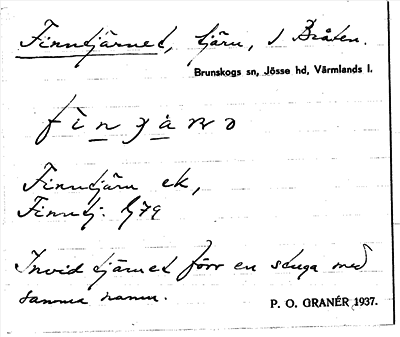 Finntjärnet, tjärn, S Bråten.
Brunskogs sn, Jösse hd, Värmlands l.
Finntjärn ek,
Finntj. G79
Invid tjärnet förr en stuga med
samma namn.
P. O. GRANÉR 1937.